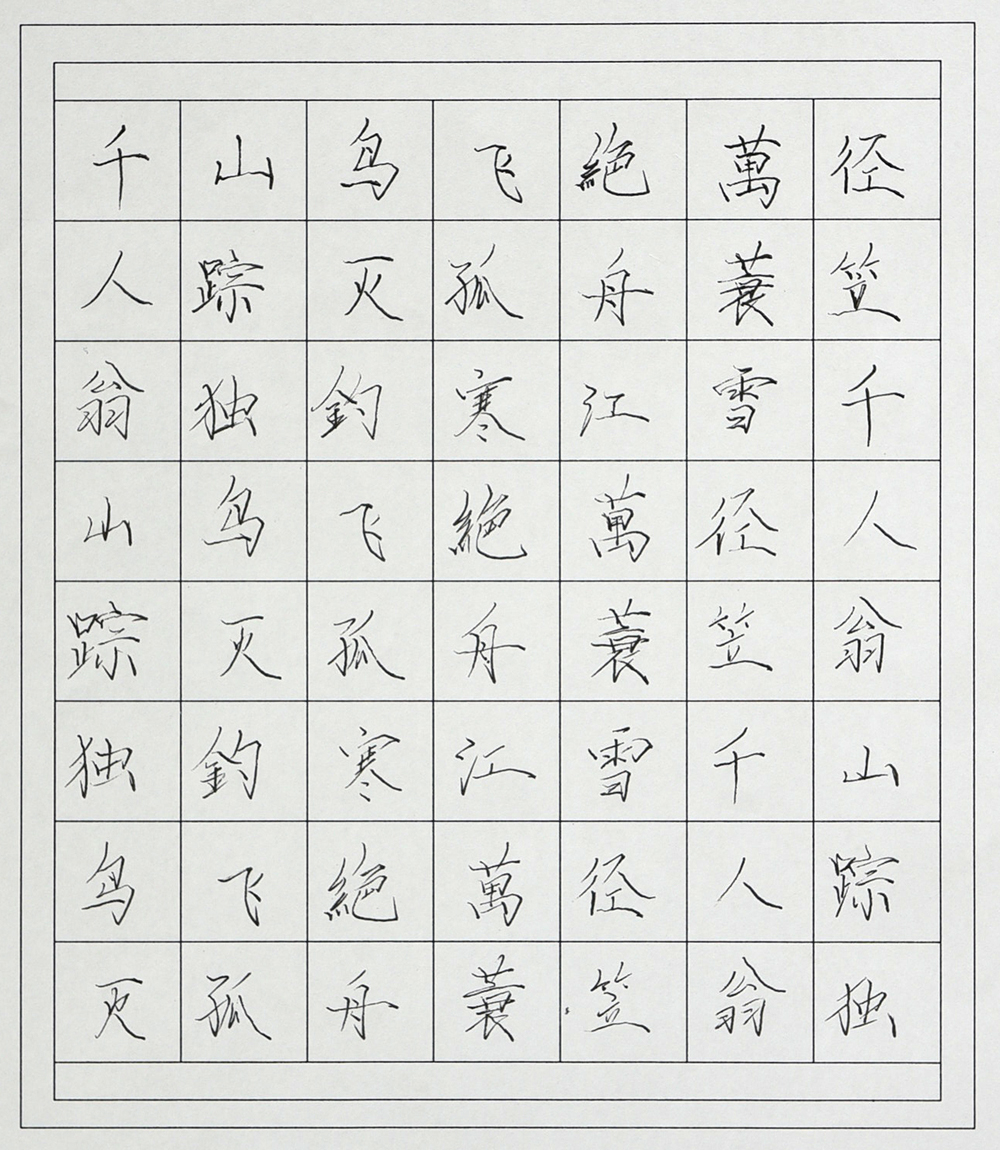 千山鸟飞絕萬径
人踪灭孤舟蓑笠
翁独釣寒江雪千
山鸟飞絕萬径人
踪灭孤舟蓑笠翁
独釣寒江雪千山
鸟飞絕萬径人踪
灭孤舟蓑笠翁独